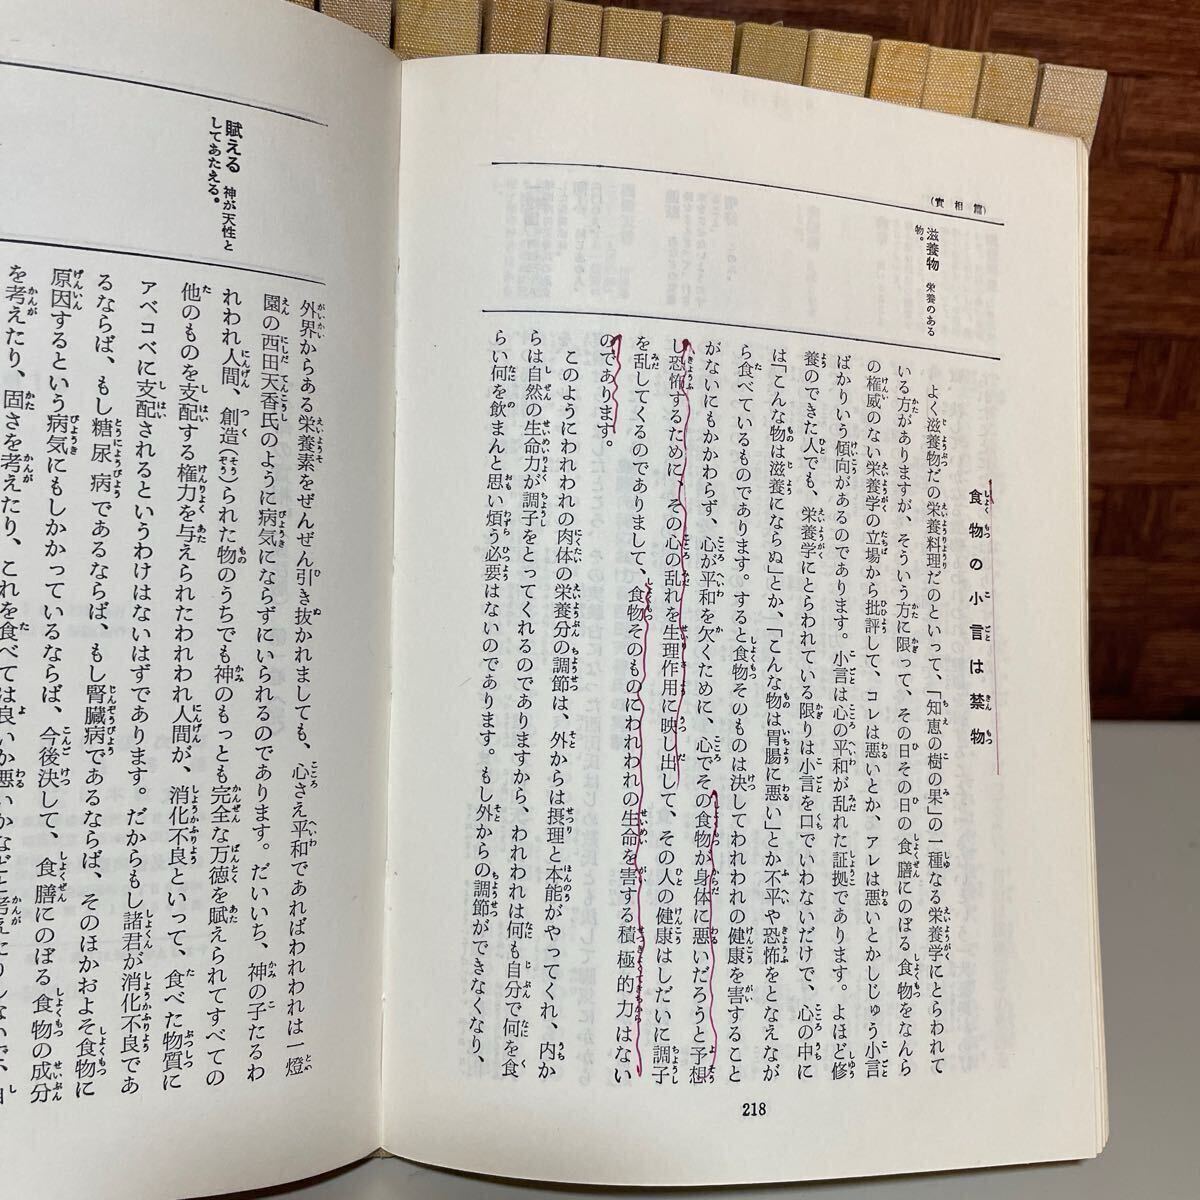 (實相篇)
滋養物 栄養のある
物。
食物の小言は禁物
よく滋養物だの栄養料理だのといって、「知恵の樹の果」の一種なる栄養学にとらわれて
いる方がありますが、そういう方に限って、その日その日の食膳にのぼる食物をなんら
の権威のない栄養学の立場から批評して、コレは悪いとか、アレは悪いとかしじゅう小言
ばかりいう傾向があるのであります。小言は心の平和が乱れた証拠であります。よほど修
養のできた人でも、栄養学にとらわれている限りは小言を口でいわないだけで、心の中に
は「こんな物は滋養にならぬ」とか、「こんな物は胃腸に悪い」とか不平や恐怖をとなえなが
ら食べているものであります。すると食物そのものは決してわれわれの健康を害すること
がないにもかかわらず、心が平和を欠くために、心でその食物が身体に悪いだろうと予想
し恐怖するために、その心の乱れを生理作用に映し出して、その人の健康はしだいに調子
を乱してくるのでありまして、食物そのものにわれわれの生命を害する積極的力はない
のであります。
このようにわれわれの肉体の栄養分の調節は、外からは摂理と本能がやってくれ、内か
らは自然の生命力が調子をとってくれるのでありますから、われわれは何も自分で何を食
らい何を飲まんと思い煩う必要はないのであります。もし外からの調節ができなくなり、
218
賦える 神が天性と
してあたえる。
外界からある栄養素をぜんぜん引き抜かれましても、心さえ平和であればわれわれは一燈
園の西田天香氏のように病気にならずにいられるのであります。だいいち、神の子たるわ
れわれ人間、創造られた物のうちでも神のもっとも完全な万徳を賦えられてすべての
他のものを支配する権力を与えられたわれわれ人間が、消化不良といって、食べた物質に
アベコベに支配されるというわけはないはずであります。だからもし諸君が消化不良であ
るならば、もし糖尿病であるならば、もし腎臓病であるならば、そのほかおよそ食物に
原因するという病気にもしかかっているならば、今後決して、食膳にのぼる食物の成分
を考えたり、固さを考えたり、これを食べては良いか悪いかなどと考えたりしないで、